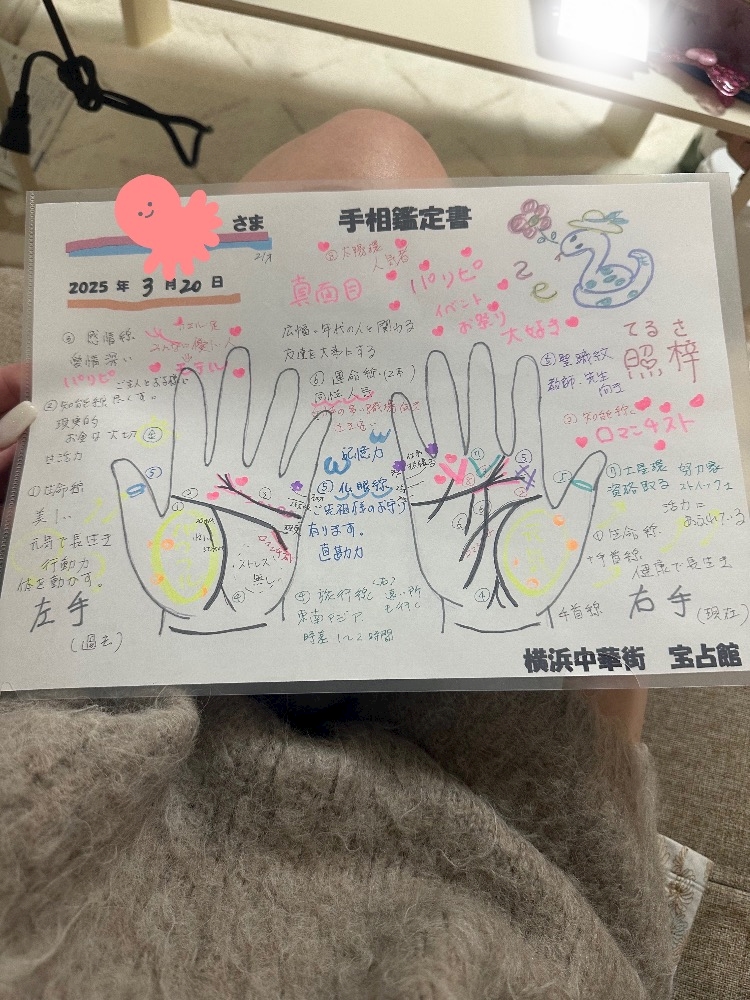 さま
手相鑑定書
2025 年 3 月 20 日
⑧ 太陽線
人気者
真面目
パリピ
イベント
お祭り
大好き
てるき
照梓
広幅い年代の人と関わる
友達を大事にする
③ 感情線
愛情深い
パリピ
みんなに優しい人
モテル
② 知能線
現実的
お金は大切 金
生活力
① 生命線
美し
元気で長生き
行動力
体を動かす。
左手
(過去)
⑥ 運命線(2本)
同性人気
の多い職場向き
記憶力
⑤ 仏眼線
ご先祖様のお守り
有ります。
直勘力
④ 旅行線
遠い所
も行く
東南アジア
時差1〜2時間
ストレス
無し
ロマンチスト
⑤ 聖職紋
教師、先生
向き
② 知能線
ロマンチスト
努力家
資格取る
① 生命線
手首線
健康で長生き
手首線
右手
(現在)
横浜中華街 宝占館